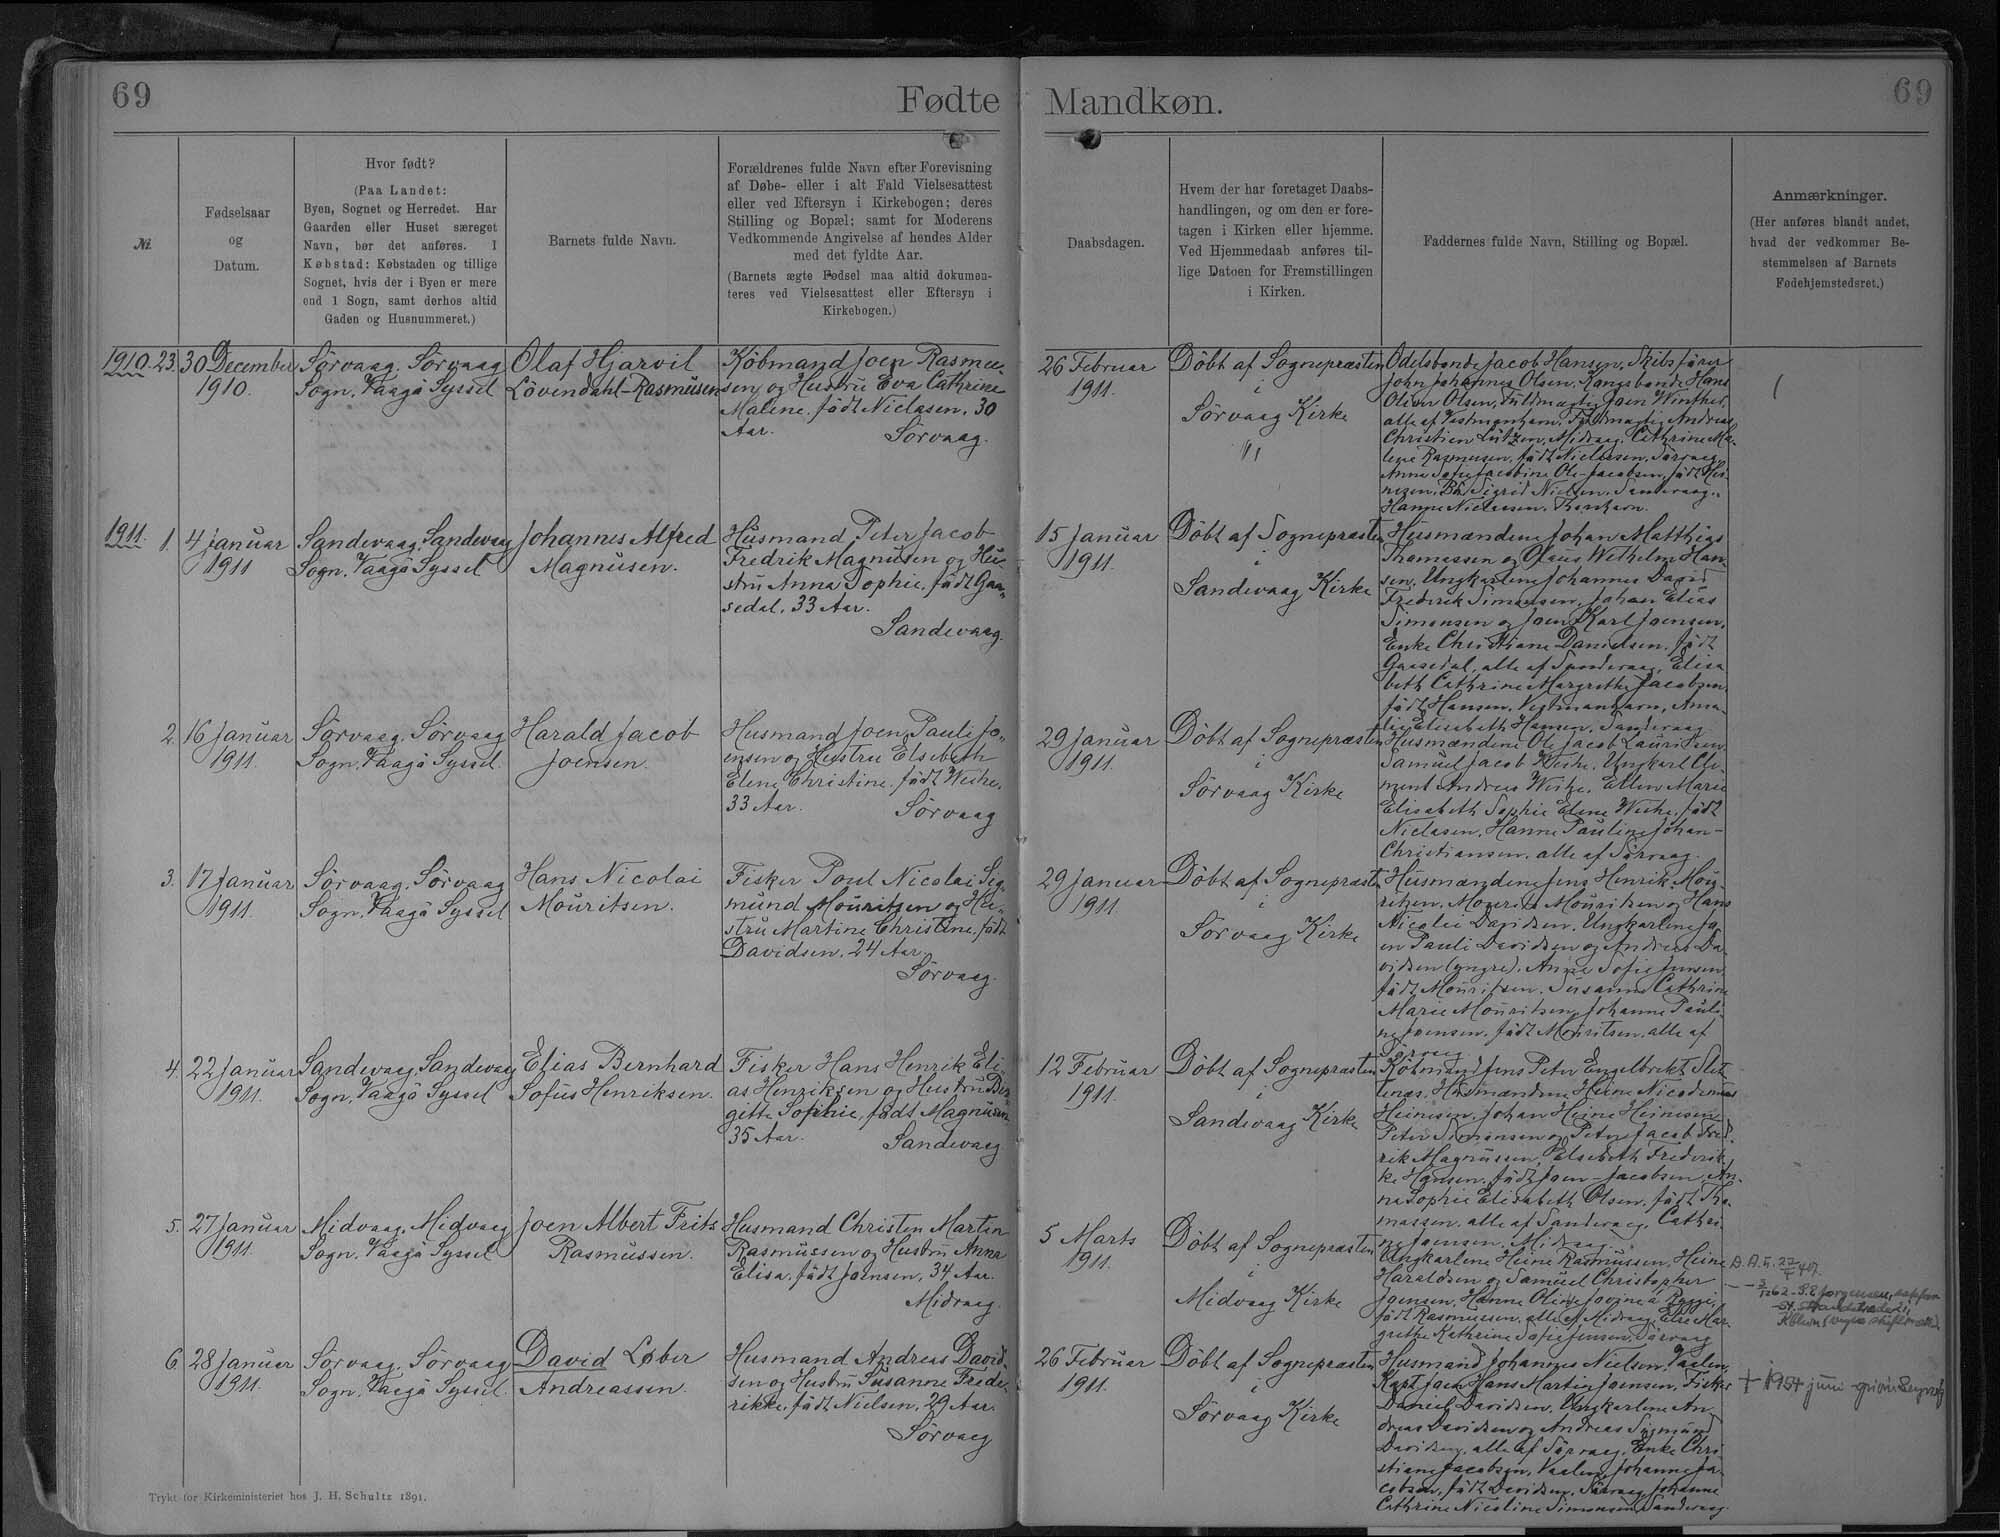 69
Fødte
Mandkøn.
69
№.
Fødselsaar
og
Datum.
Hvor født?
(Paa Landet:
Byen, Sognet og Herredet. Har
Gaarden eller Huset særeget
Navn, bør det anføres. I
Købstad: Købstaden og tillige
Sognet, hvis der i Byen er mere
end 1 Sogn, samt derhos altid
Gaden og Husnummeret.)
Barnets fulde Navn.
Forældrenes fulde Navn efter Forevisning
af Døbe- eller i alt Fald Vielsesattest
eller ved Eftersyn i Kirkebogen; deres
Stilling og Bopæl; samt for Moderens
Vedkommende Angivelse af hendes Alder
med det fyldte Aar.
(Barnets ægte Fødsel maa altid dokumen-
teres ved Vielsesattest eller Eftersyn i
Kirkebogen.)
Daabsdagen.
Hvem der har foretaget Daabs-
handlingen, og om den er fore-
tagen i Kirken eller hjemme.
Ved Hjemmedaab anføres til-
lige Datoen for Fremstillingen
i Kirken.
Faddernes fulde Navn, Stilling og Bopæl.
Anmærkninger.
(Her anføres blandt andet,
hvad der vedkommer Be-
stemmelsen af Barnets
Fødehjemstedsret.)
1910. 23.
30 December
1910.
Sörvaag, Sörvaag
Sogn, Vaagö Syssel
Olaf Hjarvil
Lövendahl-Rasmusen
Købmand Joen Rasmu-
sen og Hustru Eva Cathrine
Malene, födt Nielasen, 30
Aar.
Sörvaag.
26 Februar
1911.
Döbt af Sognepræsten
i
Sörvaag Kirke
Odelsbonde Jacob Hansen, Skibsförer
John Johannes Olsen, Kongsbonde Hans
Oliver Olsen, Fuldmægtig Joen Winther,
alle af Vestmanhavn, Fuldmægtig Andreas
Christian Lützen, Midvaag, Cathrine Ma-
lene Rasmusen, födt Nielasen, Sörvaag,
Anne Sofie Jacobine Ole-Jacobsen, födt Hei-
nesen, Bö, Sigrid Nielsen, Sandevaag,
Hanne Nielasen, Thorshavn.
1911. 1.
4 Januar
1911
Sandevaag, Sandevaag
Sogn, Vaagö Syssel
Johannes Alfred
Magnusen.
Husmand Peter Jacob
Fredrik Magnusen og Hu-
stru Anna Sophie, födt Gaa-
sedal, 33 Aar.
Sandevaag.
15 Januar
1911.
Döbt af Sognepræsten
i
Sandevaag Kirke
Husmændene Johan Matthias
Thomassen og Olaus Wilhelm Han-
sen, Ungkarlene Johannes David
Frederik Simonsen, Johan Elias
Simonsen og Joen Karl Joensen,
Enke Christiane Danielsen, födt
Gaasedal, alle af Sandevaag, Elisa
beth Cathrine Margrethe Jacobsen,
födt Hansen, Vestmanhavn, Ama-
lie Elisabeth Hansen, Sandevaag
2.
16 Januar
1911.
Sörvaag, Sörvaag
Sogn, Vaagö Syssel.
Harald Jacob
Joensen.
Husmand Joen Pauli Jo-
ensen og Hustru Elsebeth
Elene Christine, födt Weihe,
33 Aar.
Sörvaag
29 Januar
1911.
Döbt af Sognepræsten
i
Sörvaag Kirke
Husmændene Ole Jacob Lauritsen,
Samuel Jacob Weihe, Ungkarl Cle-
ment Andreas Weihe, Ellen Marie
Elisabeth Sophie Elene Weihe, födt
Nielasen, Hanne Pauline Johan-
Christiansen, alle af Sörvaag.
3.
17 Januar
1911.
Sörvaag, Sörvaag
Sogn, Vaagö Syssel
Hans Nicolai
Mouritsen.
Fisker Poul Nicolai Sig-
mund Mouritsen og Hu-
stru Martine Christine, födt
Davidsen, 24 Aar.
Sörvaag.
29 Januar
1911.
Döbt af Sognepræsten
i
Sörvaag Kirke
Husmændene Jens Henrik Mou-
ritsen, Mourits Mouritsen og Hans
Nicolai Davidsen, Ungkarlene Jo-
en Pauli Davidsen og Andreas Da-
vidsen (yngre), Anne Sofie Jensen
födt Mouritsen, Susanne Cathrine
Marie Mouritsen, Johanne Pauli-
ne Joensen, födt Mouritsen, alle af
Sörvaag.
4.
22 Januar
1911.
Sandevaag, Sandevaag
Sogn, Vaagö Syssel
Elias Bernhard
Sofus Henriksen.
Fisker Hans Henrik Eli-
as Henriksen og Hustru Bir-
gitte Sophie, födt Magnusen
35 Aar.
Sandevaag
12 Februar
1911.
Döbt af Sognepræsten
i
Sandevaag Kirke
Købmand Jens Peter Engelbrekt Slet-
tenes, Husmændene Heine Nicodemus
Heinesen, Johan Heine Heinesen,
Peter Simonsen og Peter Jacob Fred-
rik Magnussen, Elsebeth Frederik-
ke Hansen, födt Joen-Jacobsen, An-
na Sophie Elisabeth Olsen, födt Tho-
massen, alle af Sandevaag, Cathri-
ne Joensen, Midvaag
5.
27 Januar
1911.
Midvaag, Midvaag
Sogn, Vaagö Syssel
Joen Albert Frits
Rasmussen.
Husmand Christen Martin
Rasmussen og Hustru Anna
Elisa, födt Joensen, 34 Aar.
Midvaag.
5 Marts
1911.
Döbt af Sognepræsten
i
Midvaag Kirke
Ungkarlene Heine Rasmussen, Heine
Haraldsen og Samuel Christopher
Joensen, Hanne Oline Jovine á Ryggi,
födt Rasmussen, alle af Midvaag, Else Mar-
grethe Kathrine Sofie Jensen, Sörvaag
6.
28 Januar
1911.
Sörvaag, Sörvaag
Sogn, Vaagö Syssel.
David Løber
Andreassen.
Husmand Andreas David-
sen og Hustru Susanne Frede-
rikke, födt Nielsen, 29 Aar.
Sörvaag
26 Februar
1911.
Döbt af Sognepræsten
i
Sörvaag Kirke
Husmand Johannes Nielsen, Vaalen,
Hans Martin Joensen, Fisker
Daniel Davidsen, Ungkarlene An-
dreas Davidsen og Andreas Sigmund
Davidsen, alle af Sörvaag, Enke Chri-
stiane Jacobsen, Vaalen, Johanne Ja-
cobsen, födt Davidsen, Sörvaag, Johanne
Cathrine Nicoline Simonsen, Sandevaag.
† 1954 juni
Trykt for Kirkeministeriet hos J. H. Schultz 1891.